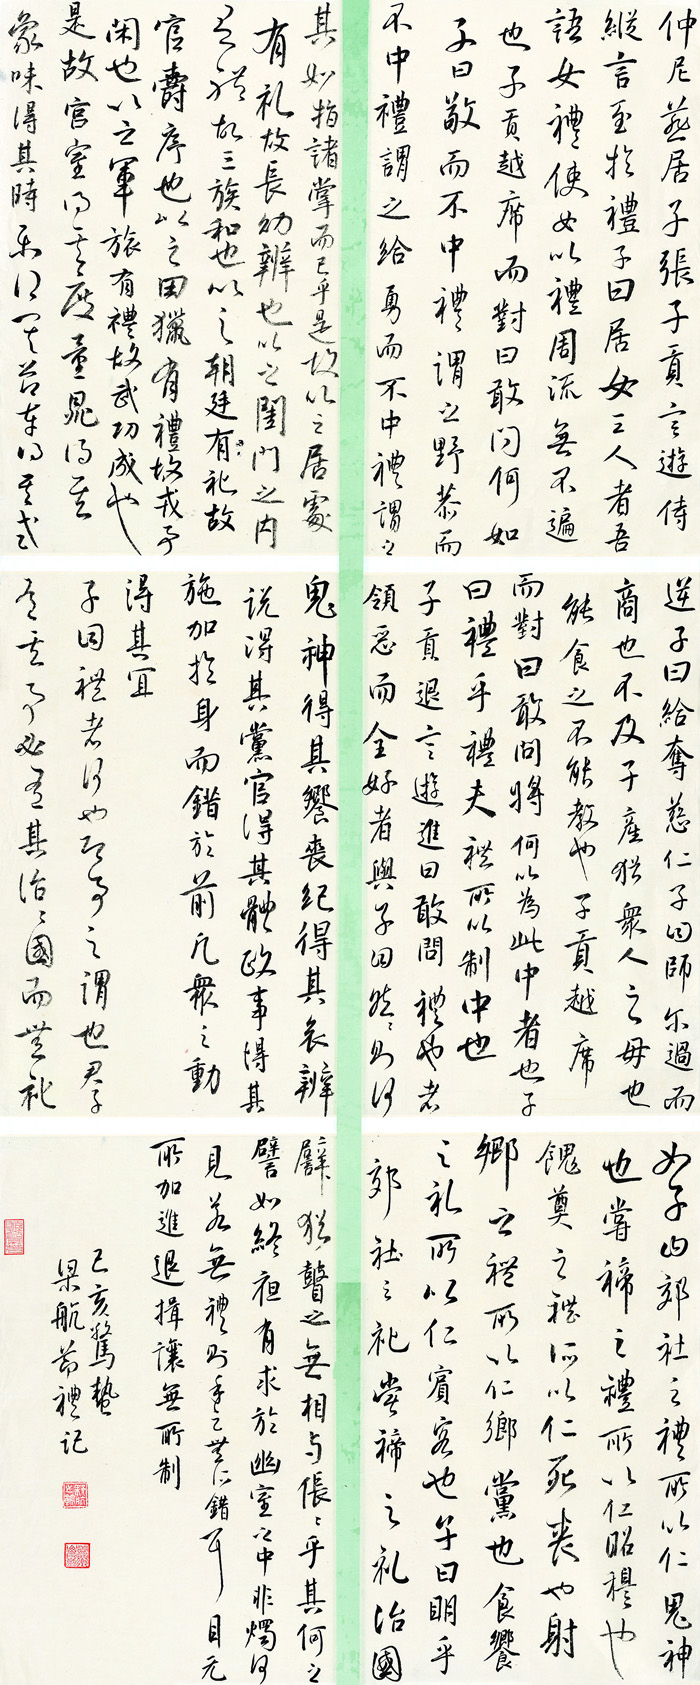 仲尼燕居子張子貢言遊侍
縱言至於禮子曰居女三人者吾
語女禮使女以禮周流無不遍
也子貢越席而對曰敢問何如
子曰敬而不中禮謂之野恭而
不中禮謂之給勇而不中禮謂之
逆子曰給奪慈仁子曰師尔過而
商也不及子產猶眾人之母也
能食之不能教也子貢越席
而對曰敢問將何以為此中者也子
曰禮乎禮夫礼所以制中也
子貢退言遊進曰敢問禮也者
領惡而全好者與子曰然〻則何
如子曰郊社之禮所以仁鬼神
也嘗禘之禮所以仁昭穆也
餽奠之禮所以仁死喪也射
鄉之禮所以仁鄉黨也食饗
之礼所以仁賓客也子曰明乎
郊社之礼嘗禘之礼治國
其如指諸掌而已乎是故以之居處
有礼故長幼辨也以之閨門之内
有礼故三族和也以之朝廷有礼故
官爵序也以之田獵有禮故戎事
閑也以之軍旅有禮故武功成也
是故宮室得其度量鼎得其
象味得其時樂得其節車得其式
鬼神得其饗喪紀得其哀辨
說得其黨官得其體政事得其
施加於身而錯於前凡眾之動
得其宜
子曰禮者何也即事之謂也君子
有其事必有其治〻國而無礼
譬猶瞽之無相與倀〻乎其何之
譬如終夜有求於幽室之中非燭何
見若無禮則手足無所錯耳目无
所加進退揖讓無所制
己亥驚蟄
梁航節禮記